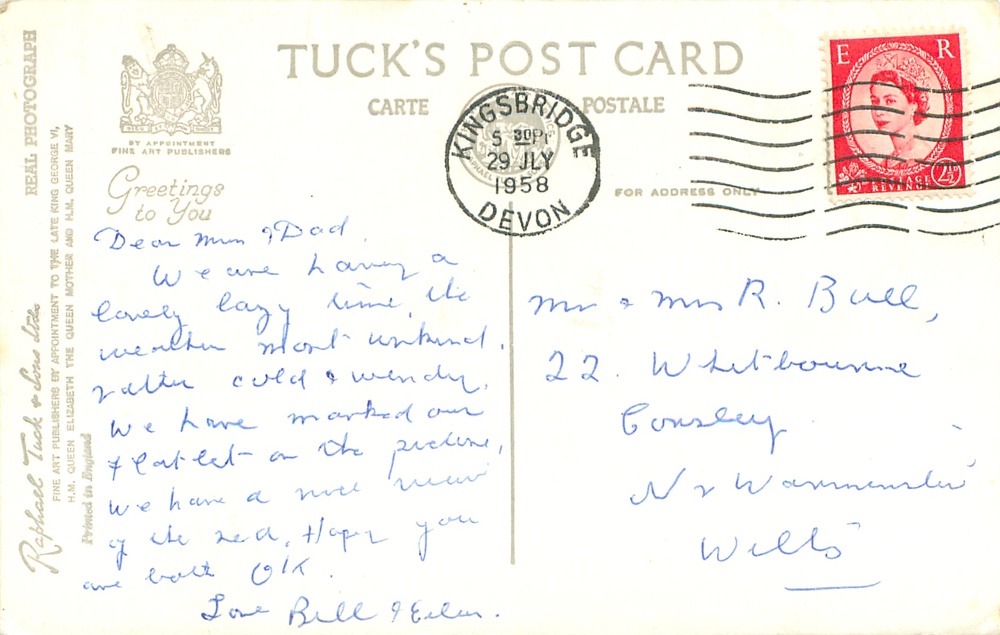 TUCK'S POST CARD
CARTE POSTALE
BY APPOINTMENT
FINE ART PUBLISHERS
Greetings
to You
FOR ADDRESS ONLY
KINGSBRIDGE
5 30PM
29 JLY
1958
DEVON
E R
POSTAGE
REVENUE
2½D
REAL PHOTOGRAPH
Raphael Tuck & Sons Ltd.
FINE ART PUBLISHERS BY APPOINTMENT TO THE LATE KING GEORGE VI,
H.M. QUEEN ELIZABETH THE QUEEN MOTHER AND H.M. QUEEN MARY
Printed in England
Dear Mum & Dad.
We are having a
lovely lazy time, the
weather most unkind,
rather cold & windy.
We have marked our
flatlet on the picture,
we have a nice view
of the sea, Hope you
are both OK.
Love Bill &
Mr & Mrs R. Bull,
22. Whitbourne
Corsley
Nr Warminster
Wilts